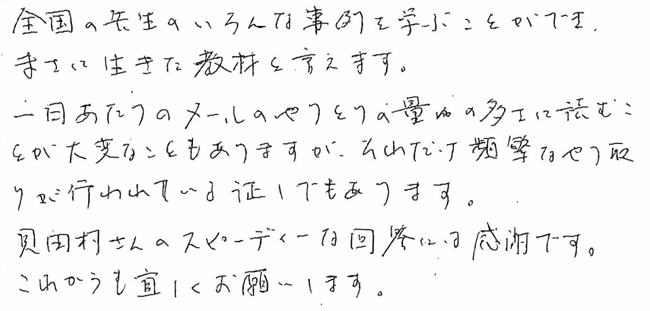 全国の先生のいろんな事例を学ぶことができ、
まさに生きた教材と言えます。
一日あたりのメールのやりとりの量の多さに読むこ
とが大変なこともありますが、それだけ頻繁なやり取
りが行われている証しでもあります。
貝田村さんのスピーディーな回答には感謝です。
これからも宜しくお願いします。